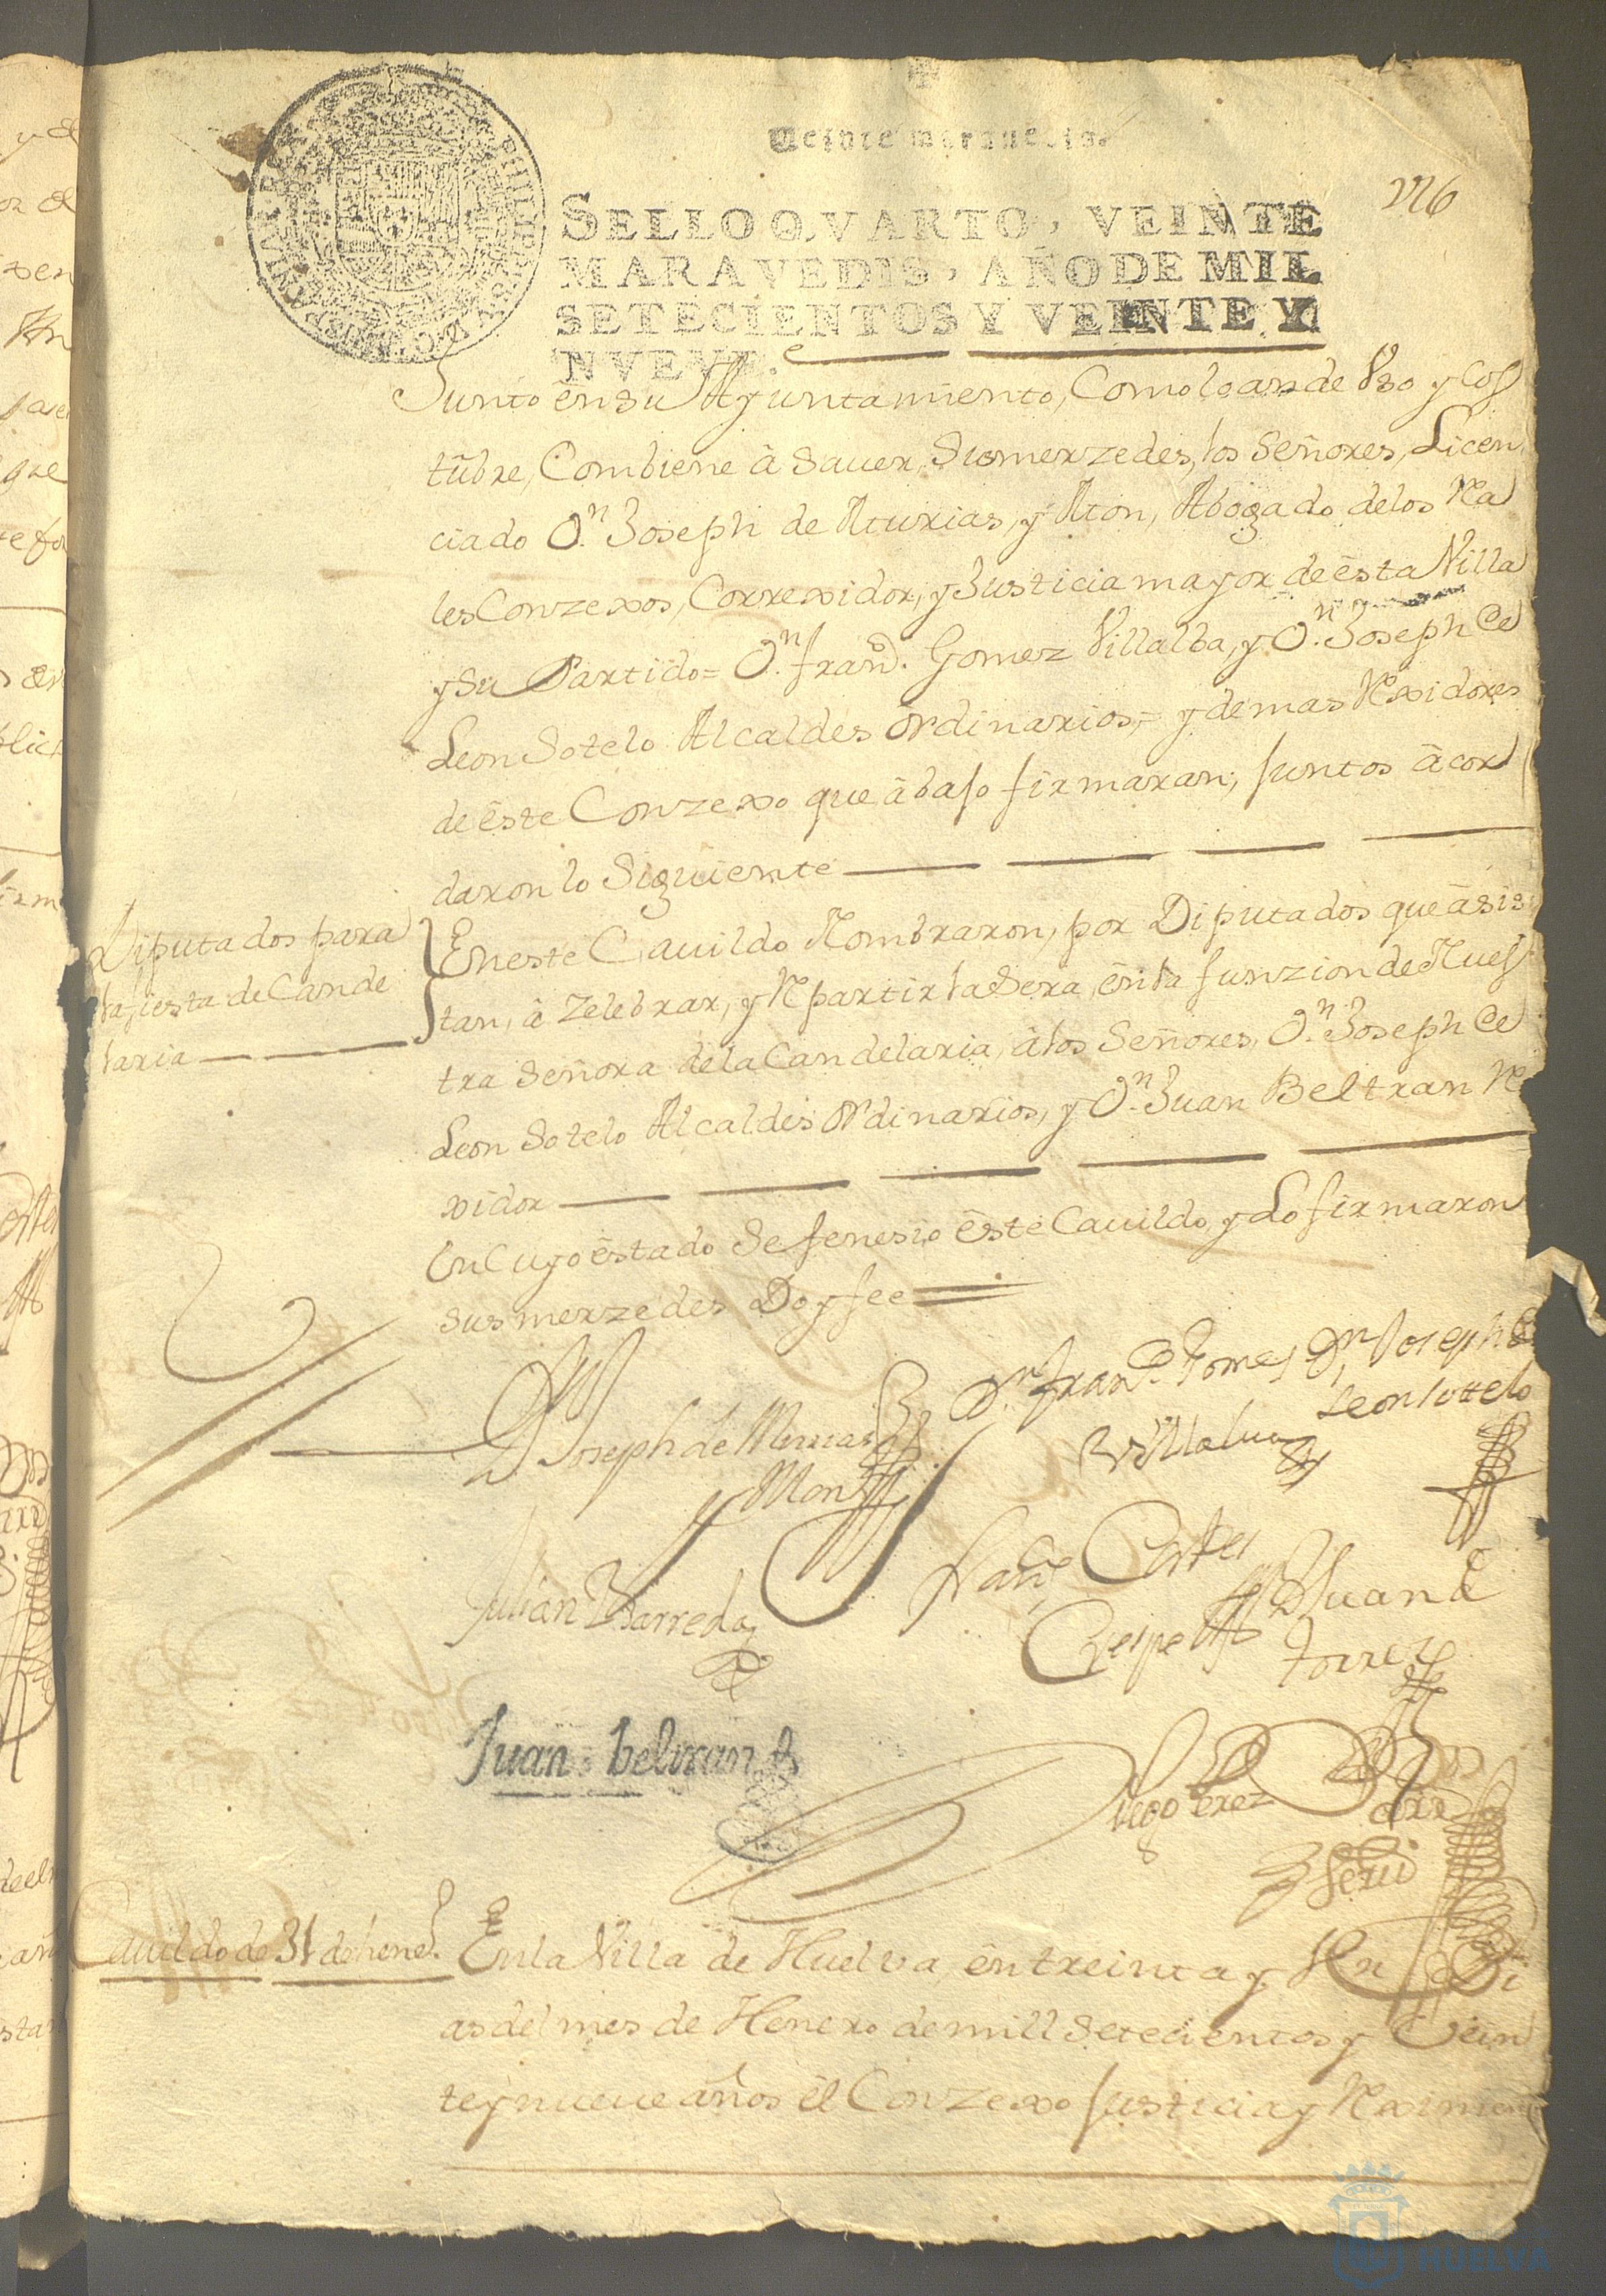 Veinte maravedis
SELLO QVARTO, VEINTE
MARAVEDIS, AÑO DE MIL
SETECIENTOS Y VEINTE Y
NVEVE.
Junto ensu Ayuntamiento, Como lo an de Vso y Cos
tubre, Combiene à Sauer, Susmerzedes, los Señores, Licen
ciado Dn. Joseph de Aturias, y Mon, Abogado delos Rea
les Conzexos, Correxidor, y Justicia mayor de ésta Villa
y Su Partido= Dn. Franco. Gomez Villalba, y Dn. Joseph de
Leon Sotelo Alcaldes ordinarios,= y demas Rexidores
de éste Conzexo que àbajo firmaran; Juntos àcor
daron lo Siguiente
Diputados para
la fiesta de Cande
laria
En este Cauildo Nombraron, por Diputados que àsis
tan, à Zelebrar, y Repartir la Sera, én la funzion de Nues
tra Señora dela Candelaria, àlos Señores, Dn. Joseph de
Leon Sotelo Alcaldes ordinarios, y Dn. Juan Beltran Re
xidor
En Cuyo éstado Se fenesio éste Cauildo, y Lo firmaron
Sus merzedes Doy fee
Joseph de
Mon
Dn. Franco. Gomez
Villalua
Dn. Joseph de
Leon Sotelo
Julian Barreda
Franco. Cortes
Crespo
D Juan de
Torres
Juan beltran
Diego Perez
Cauildo de 31 de hene.
En la Villa de Huelva, én treinta y Un Di
as del mes de Henero de mill Setecientos y Vein
te y nueue años él Conzexo Justicia y Reximien
HUELVA